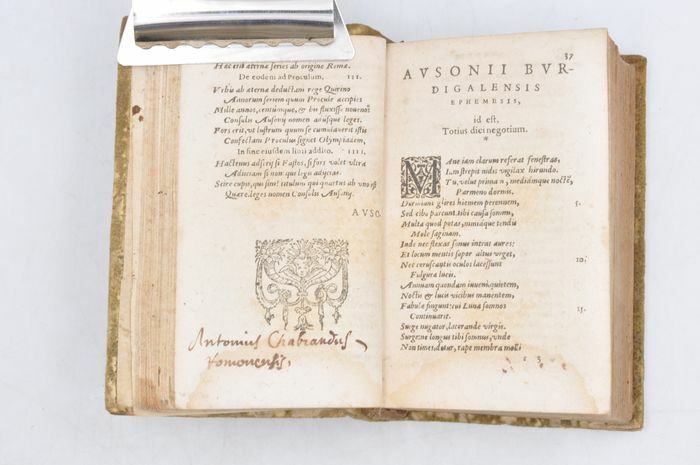 Hæc erit æternæ series ab origine Romæ.
De eodem ad Proculum. III.
Vrbis ab æternæ deductam rege Quirino
Annorum seriem quum Procule accipies
Mille annos, centúmque, & bis fluxisse nouenos
Consulis Ausonij nomen adúsque leges.
Fors erit, vt lustrum quum se cumulauerit istis
Confectam Proculus signet Olympiadem,
In fine eiusdem libri additi. IIII.
Hactenus adscripsi Fastos, si sors volet vltra
Adijciam: si non: qui legis adijcias.
Scire cupis, qui sim? titulum qui quartus ab vno est
Quære. leges nomen Consulis Ausonij.
AVSO.
Antonius Chabrandus
Romonensis.
37
AVSONII BVR-
DIGALENSIS
EPHEMESIS,
id est,
Totius diei negotium.
*
MAne iam clarum reserat fenestras,
Iam strepit nidis vigilax hirundo.
Tu, velut primam, mediámque noctē,
Parmeno dormis.
Dormiunt glires hiemem perennem, 5.
Sed cibo parcunt. tibi causa somni,
Multa quod potas, nimiáque tendis
Mole saginam.
Inde nec flexas sonus intrat aures:
Et locum mentis sopor altus vrget, 10.
Nec coruscantis oculos lacessunt
Fulgura lucis.
Annuam quondam iuueni quietem,
Noctis & lucis vicibus manentem,
Fabulæ fingunt: cui Luna somnos 15.
Continuarit.
Surge nugator, lacerande virgis.
Surge: ne longus tibi somnus, vnde
Non times, detur, rape membra molli